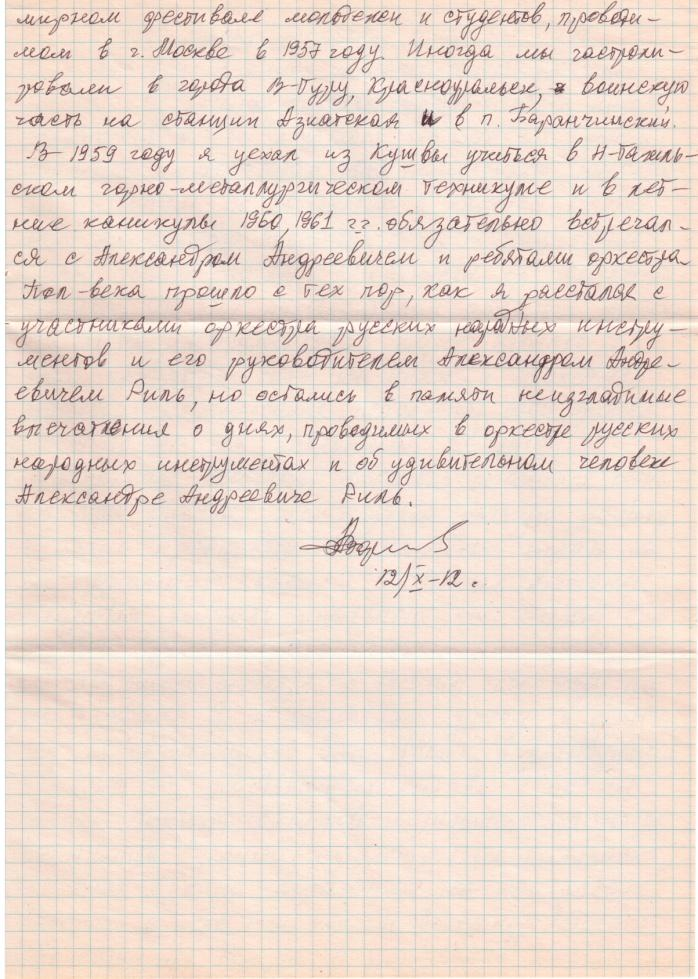 мирном фестивале молодежи и студентов, проводи-
мом в г. Москве в 1957 году. Иногда мы гастроли-
ровали в города В-Туру, Красноуральск, воинскую
часть на станции Азиатская и в п. Баранчинский.
В 1959 году я уехал из Кушвы учиться в Н-Тагиль-
ском горно-металлургическом техникуме и в лет-
ние каникулы 1960, 1961 г.г. обязательно встречал-
ся с Александром Андреевичем и ребятами оркестра.
Пол-века прошло с тех пор, как я расстался с
участниками оркестра русских народных инстру-
ментов и его руководителем Александром Андре-
евичем Риль, но остались в памяти неизгладимые
впечатления о днях, проводимых в оркестре русских
народных инструментах и об удивительном человеке
Александре Андреевиче Риль.
12/X-12.